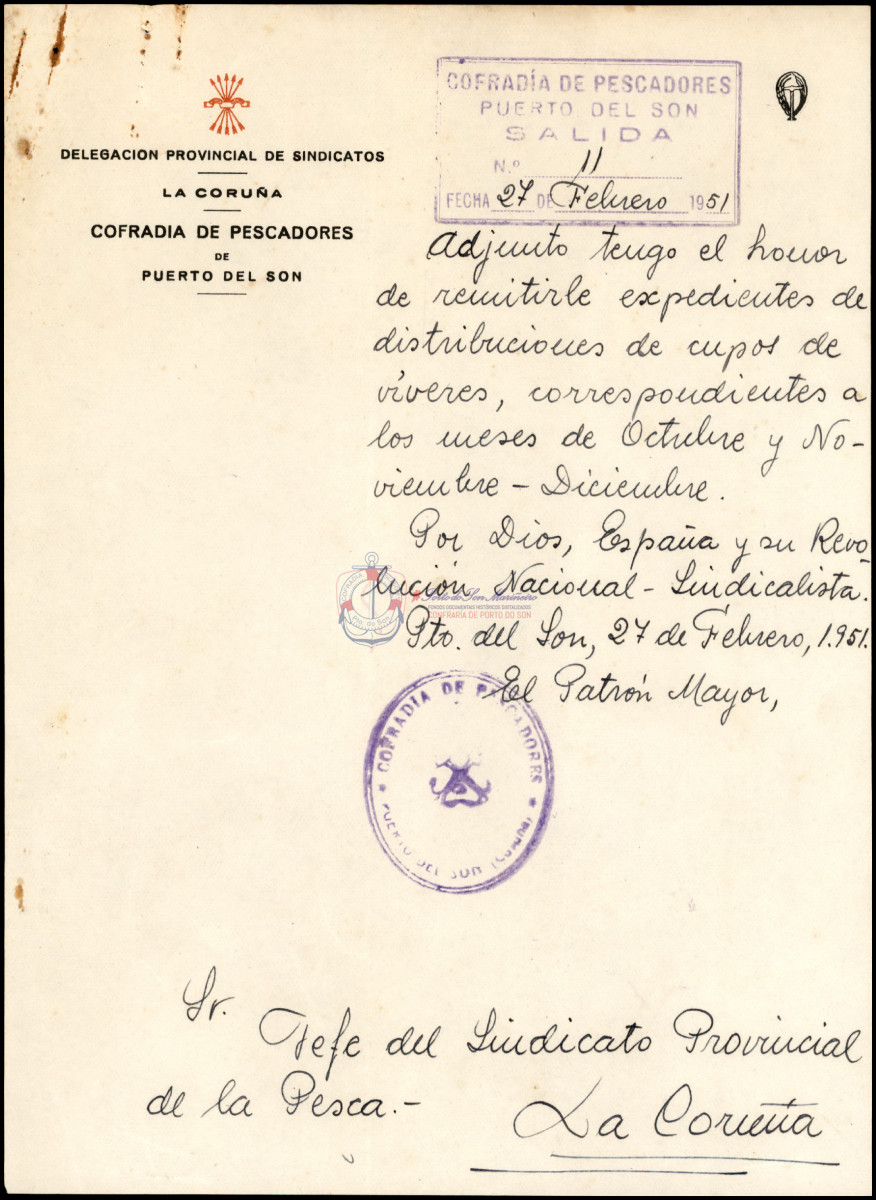 DELEGACION PROVINCIAL DE SINDICATOS
LA CORUÑA
COFRADIA DE PESCADORES
DE
PUERTO DEL SON
COFRADÍA DE PESCADORES
PUERTO DEL SON
SALIDA
N.º 11
FECHA 27 DE Febrero 1951
Adjunto tengo el honor
de remitirle expedientes de
distribuciones de cupos de
víveres, correspondientes a
los meses de Octubre y No-
viembre - Diciembre.
Por Dios, España y su Revo-
lución Nacional - Sindicalista.
Porto do Son Mariñeiro
FONDOS DOCUMENTAIS HISTÓRICOS DIXITALIZADOS
CONFRARÍA DE PORTO DO SON
Pto. do Son
Pto. del Son, 27 de Febrero, 1.951.
El Patrón Mayor,
COFRADÍA DE PESCADORES
* PUERTO DEL SON (Coruña) *
Sr.
Jefe del Sindicato Provincial
de la Pesca.-
La Coruña